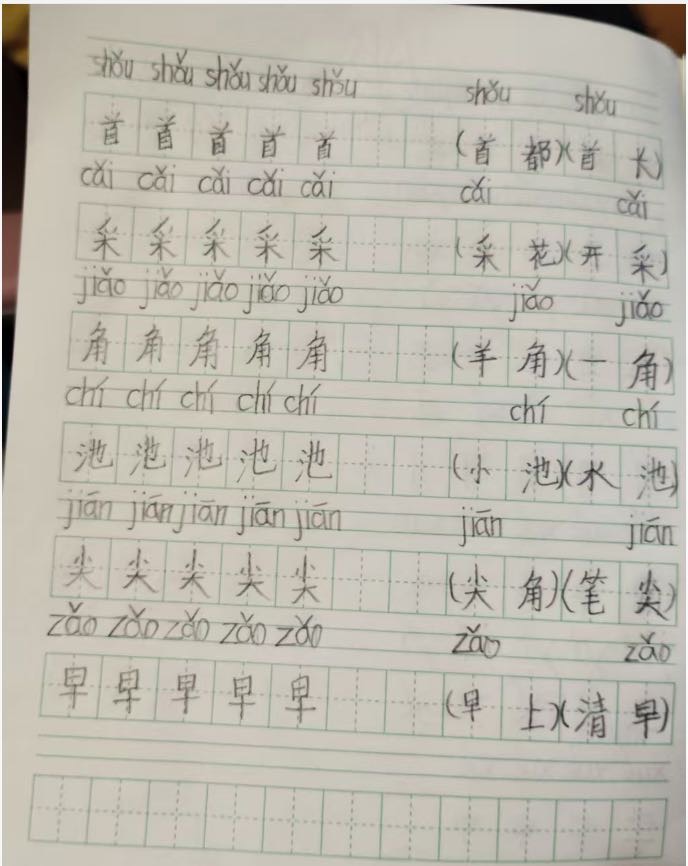 shǒu shǒu shǒu shǒu shǒu shǒu shǒu
首 首 首 首 首 (首 都)(首 长)
cǎi cǎi cǎi cǎi cǎi cǎi cǎi
采 采 采 采 采 (采 花)(开 采)
jiǎo jiǎo jiǎo jiǎo jiǎo jiǎo jiǎo
角 角 角 角 角 (羊 角)(一 角)
chí chí chí chí chí chí chí
池 池 池 池 池 (小 池)(水 池)
jiān jiān jiān jiān jiān jiān jiān
尖 尖 尖 尖 尖 (尖 角)(笔 尖)
zǎo zǎo zǎo zǎo zǎo zǎo zǎo
早 早 早 早 早 (早 上)(清 早)